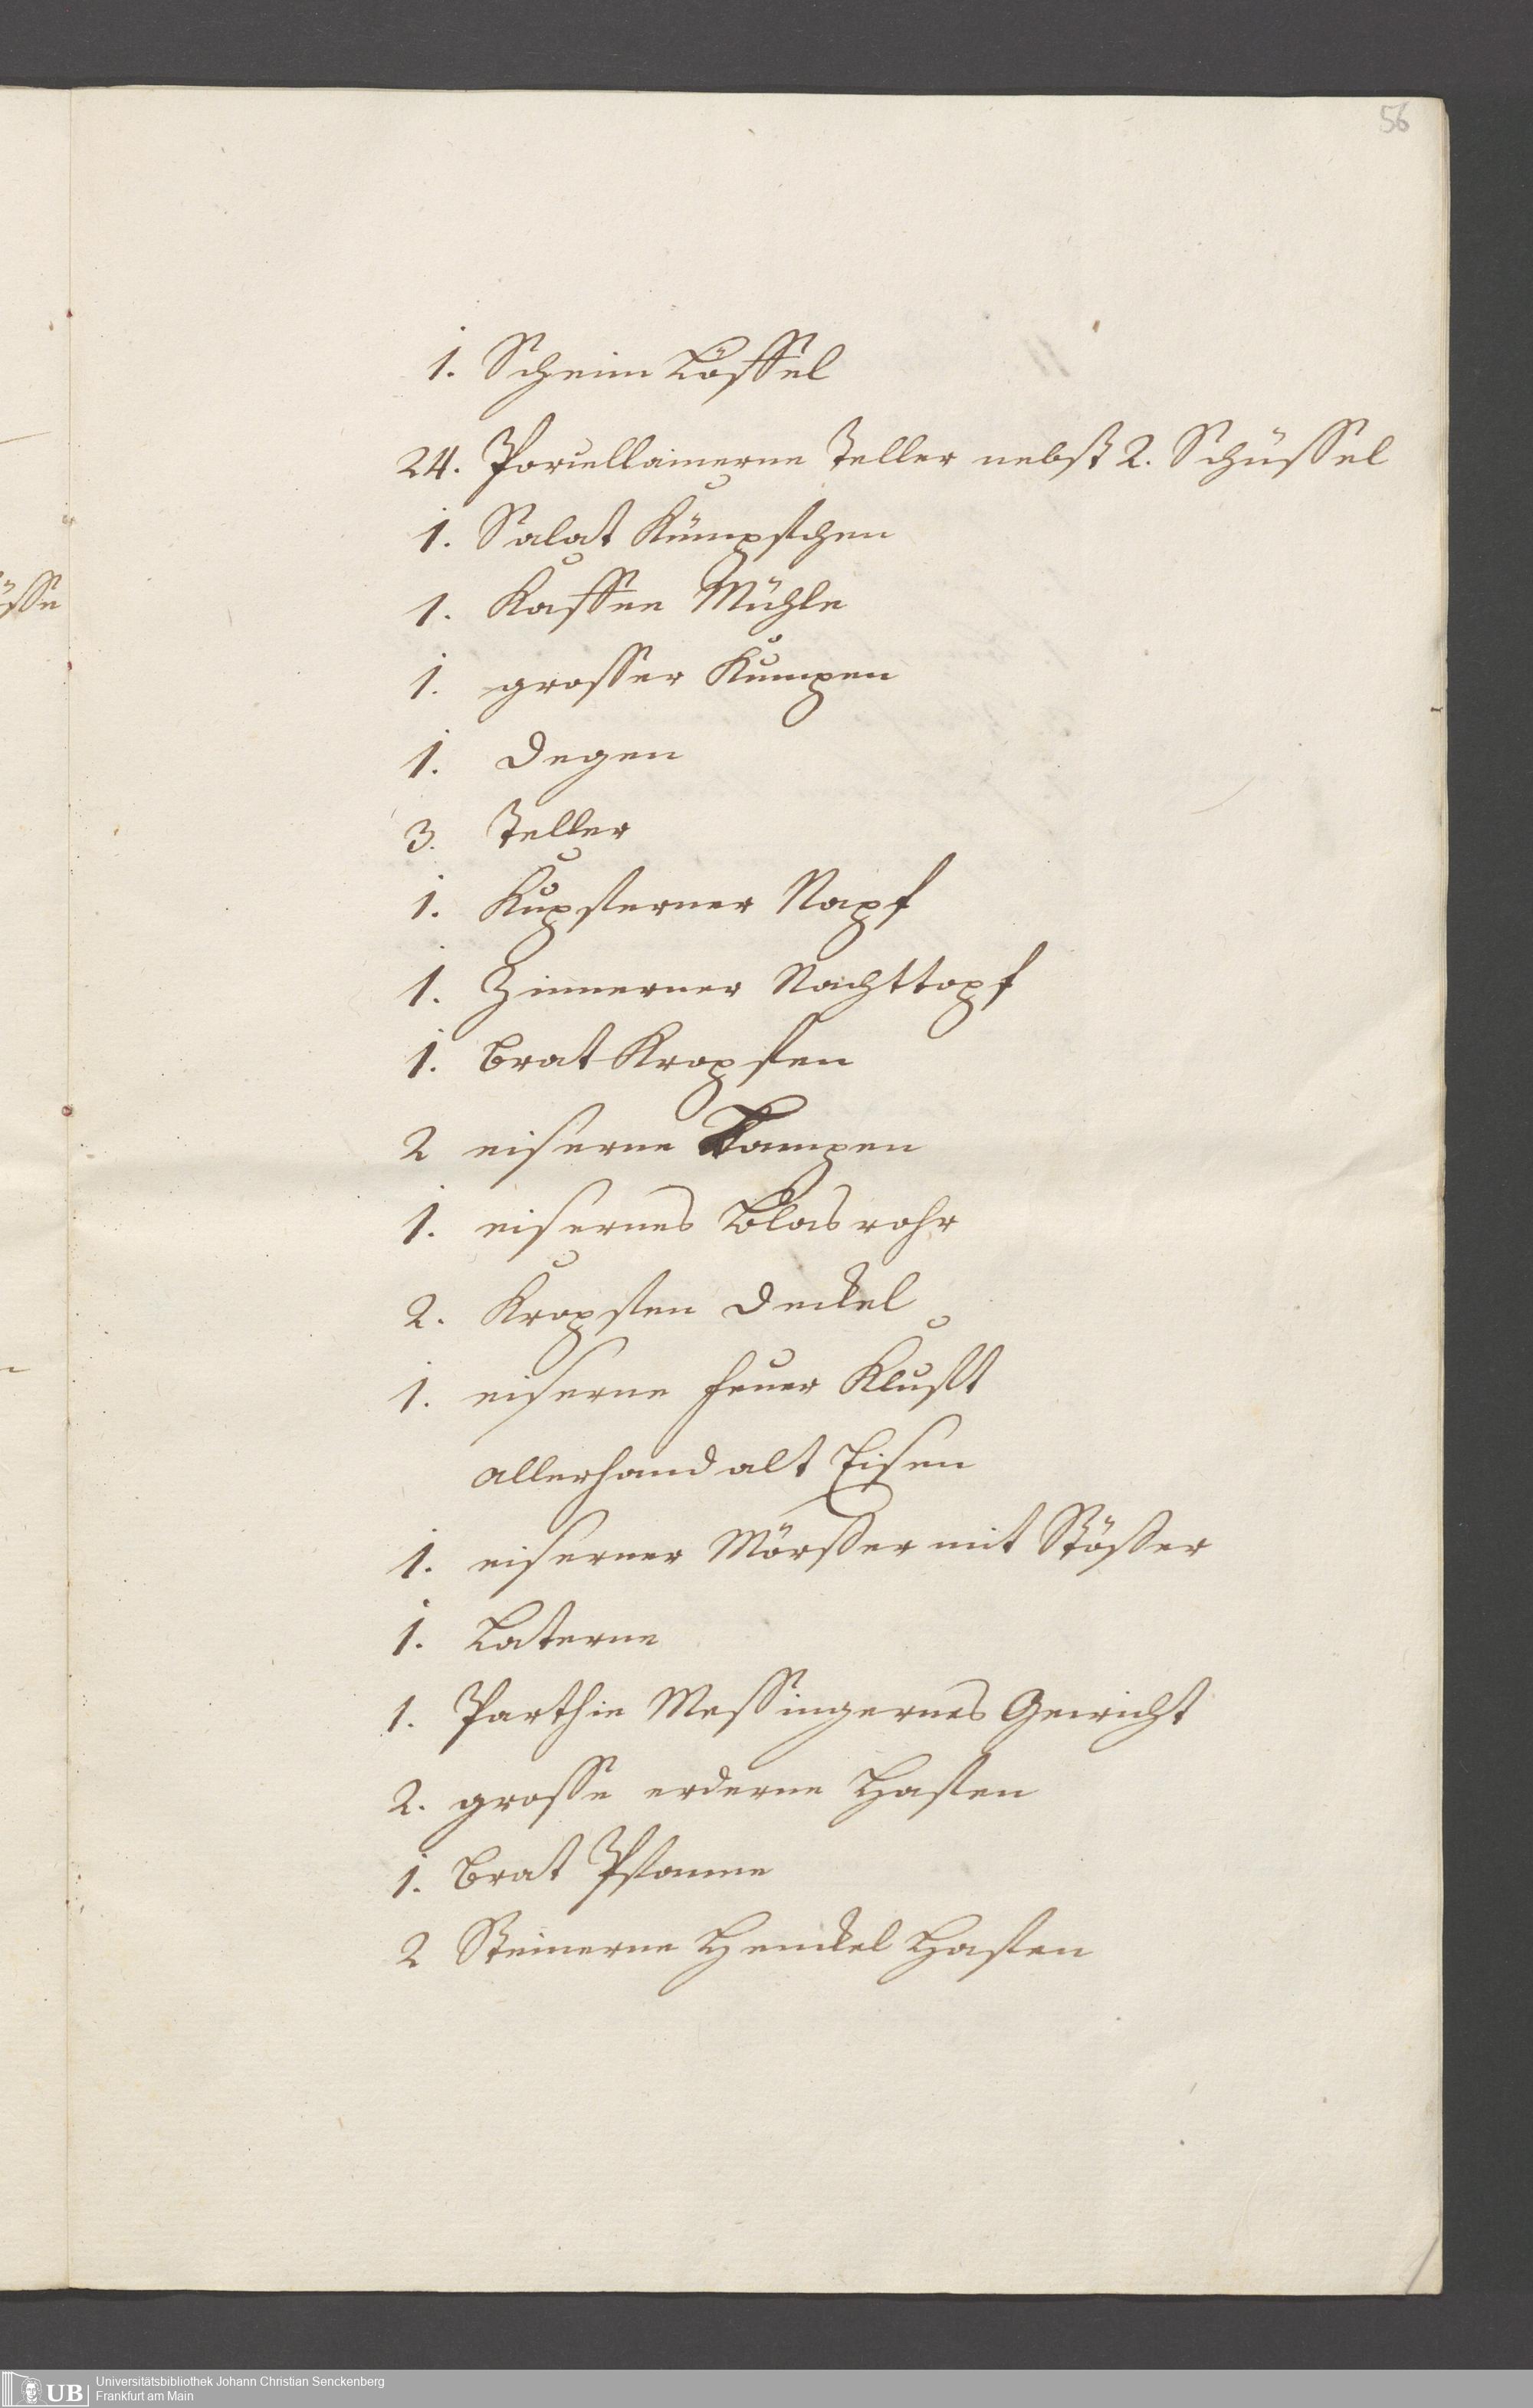 56
1. Scheim Löffel
24. Porcellainerne Teller nebst 2. Schüssel
1. Salat Kümpfchen
1. Kaffee Mühle
1. grosser Kumpen
1. Degen
3. Teller
1. Kupferner Napf
1. Zinnerner Nachttopf
1. Brat Kropfen
2 eiserne Lampen
1. eisernes Blasrohr
2. Kropfen Deckel
1. eiserne Feuer Kluft
allerhand alt Eisen
1. eiserner Mörser mit Stößer
1. Laterne
1. Parthie Messingernes Gewicht
2. grosse erderne Hafen
1. Brat Pfanne
2 Steinerne Henckel Hafen
UB
Universitätsbibliothek Johann Christian Senckenberg
Frankfurt am Main